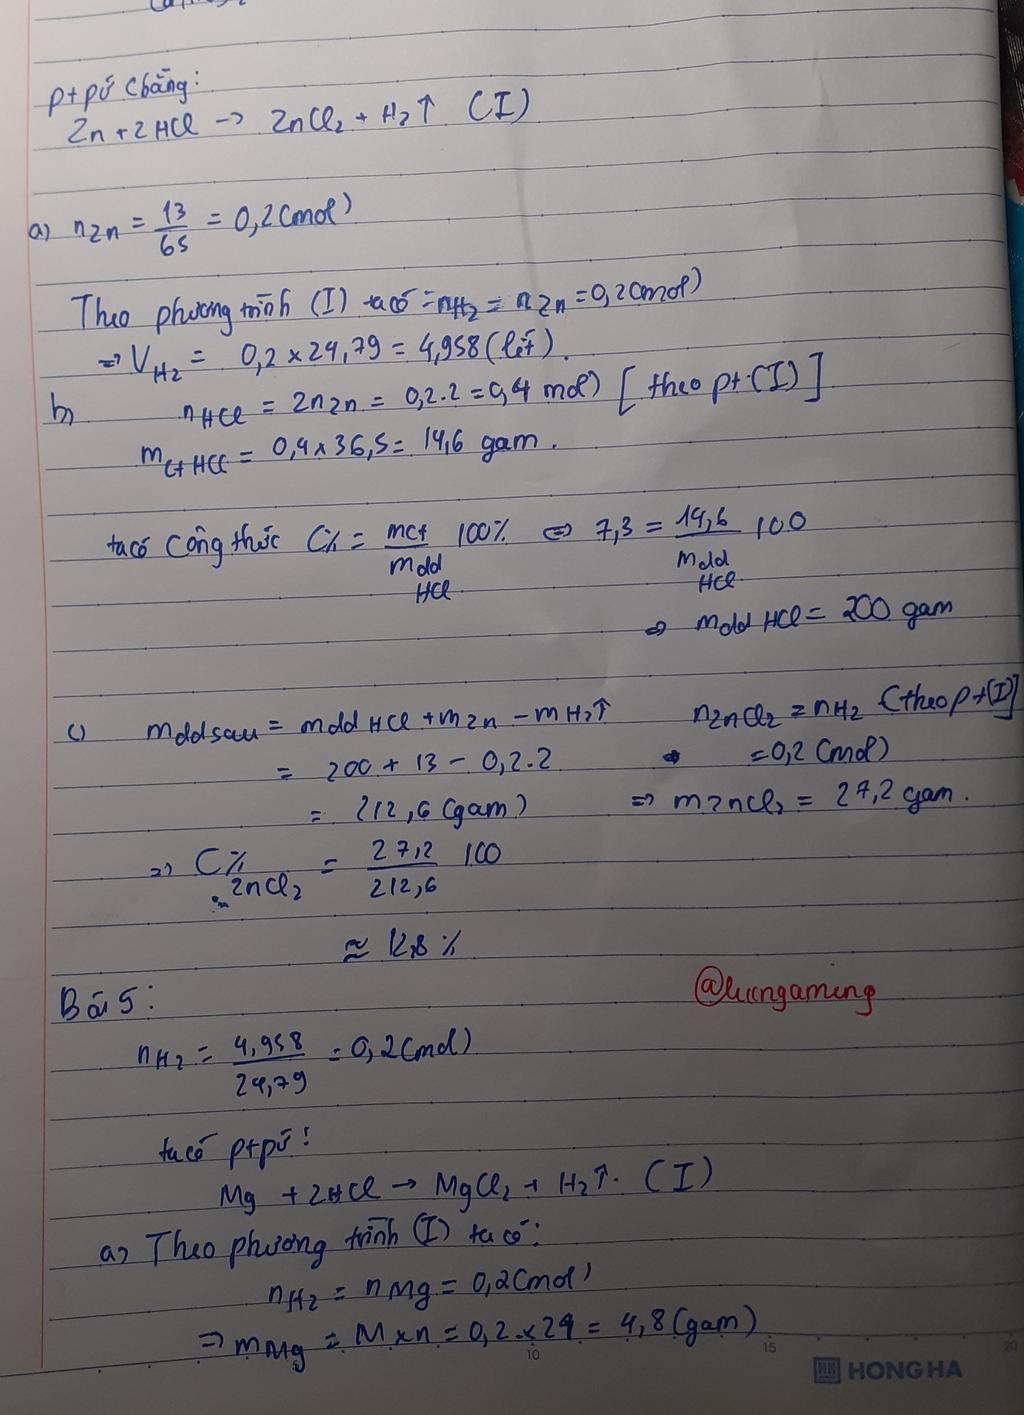 ptpứ Cbằng:
Zn + 2HCl -> ZnCl2 + H2↑ (I)
a) nZn = 13/65 = 0,2 (mol)
Theo phương trình (I) ta có: nH2 = nZn = 0,2 (mol)
=> VH2 = 0,2 x 24,79 = 4,958 (lít).
b) nHCl = 2nZn = 0,2.2 = 0,4 mol) [theo pt (I)]
mct HCl = 0,4 x 36,5 = 14,6 gam.
ta có công thức C% = mct/mdd HCl 100% <=> 7,3 = 14,6/mdd HCl 100
=> mdd HCl = 200 gam
c) mdd sau = mdd HCl + mZn - mH2↑ nZnCl2 = nH2 (theo pt (I)]
= 200 + 13 - 0,2.2 = 0,2 (mol)
= 212,6 (gam) => mZnCl2 = 27,2 gam.
=> C% ZnCl2 = 27,2/212,6 100
≈ 12,8 %
Bài 5:
@liungaming
nH2 = 4,958/24,79 = 0,2 (mol)
ta có ptpứ:
Mg + 2HCl → MgCl2 + H2↑. (I)
a) Theo phương trình (I) ta có:
nH2 = nMg = 0,2 (mol)
=> mMg = M x n = 0,2 x 24 = 4,8 (gam)
10 15 20
HH HONG HA